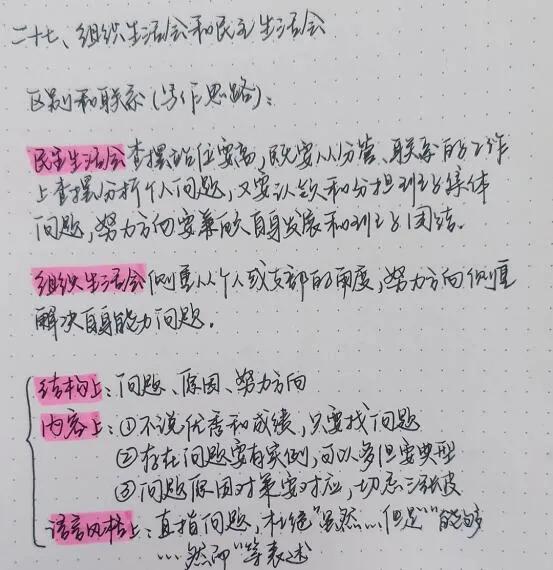 二十七、组织生活会和民主生活会
区别和联系(写作思路):
民主生活会查摆站位要高,既要从分管、联系的工作
上查摆分析个人问题,又要认领和分担班子集体
问题,努力方向要兼顾自身发展和班子团结。
组织生活会侧重从个人或支部的角度,努力方向侧重
解决自身能力问题。
结构上:问题、原因、努力方向
内容上:①不说优秀和成绩,只要找问题
②存在问题要有实例,可以多但要典型
③问题原因对策要对应,切忌
语言风格上:直指问题,杜绝"虽然...但是""能够
...然而"等表述